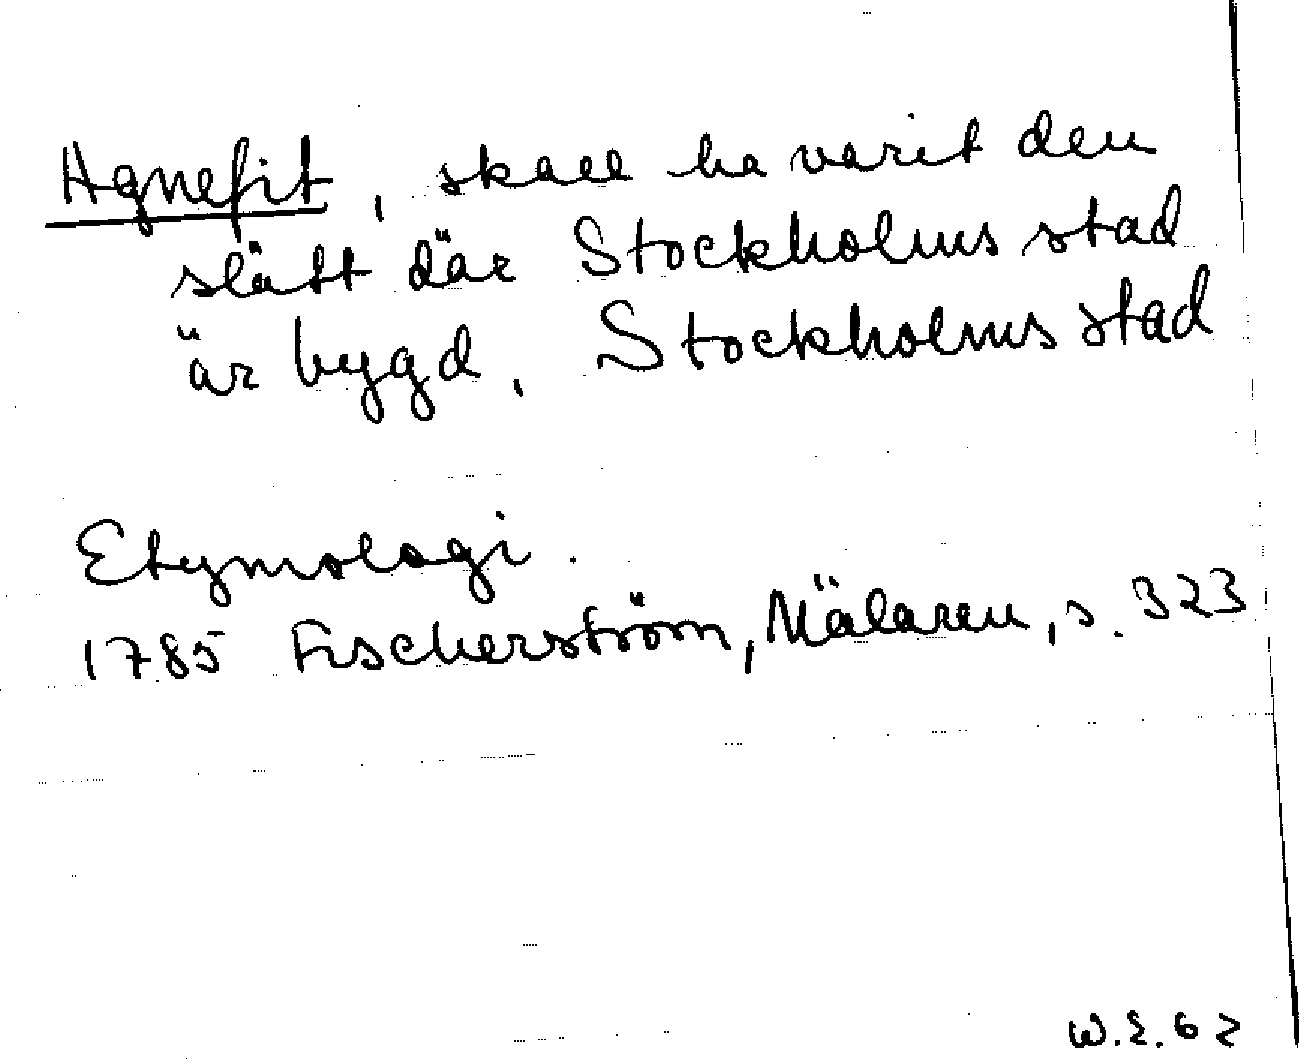 Agnefit, skall ha varit den
slätt där Stockholms stad
är bygd, Stockholms stad
Etymologi.
1785 Fischerström, Mälaren, s. 323
W.E. 62